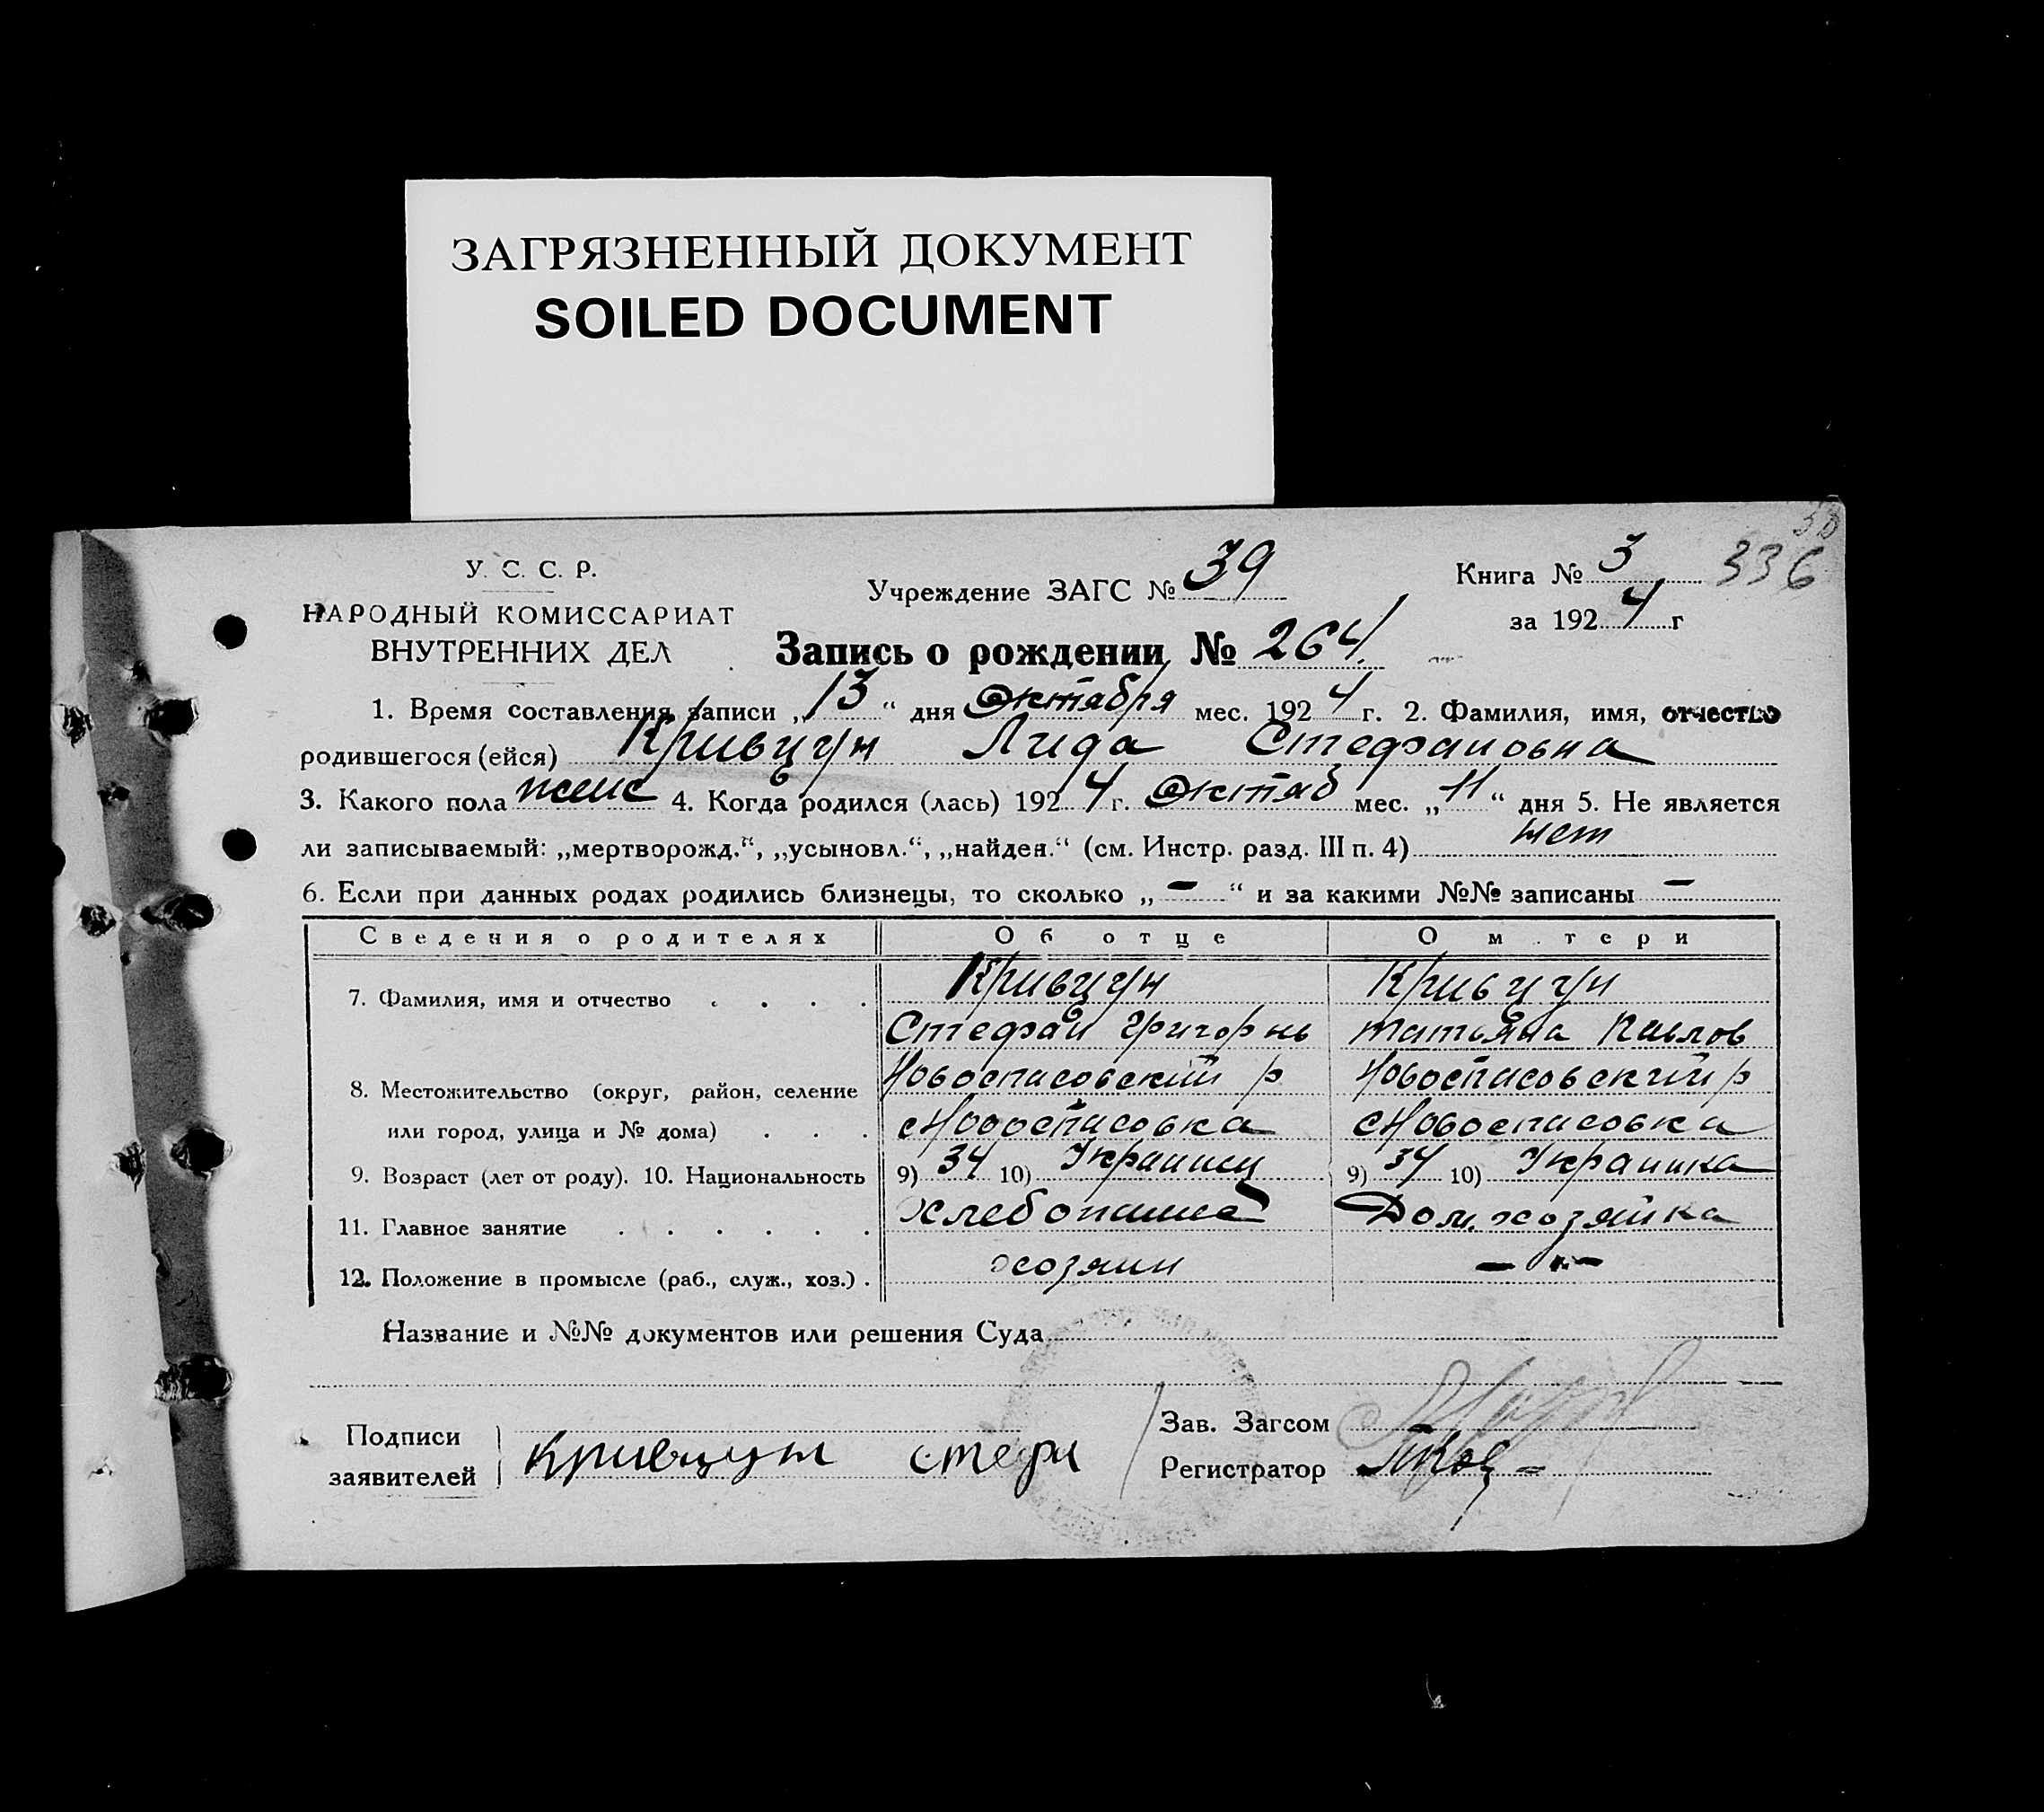 ЗАГРЯЗНЕННЫЙ ДОКУМЕНТ
SOILED DOCUMENT
336
У. С. С. Р.
НАРОДНЫЙ КОМИССАРИАТ
ВНУТРЕННИХ ДЕЛ
Учреждение ЗАГС № 39
Книга № 3
за 1924 г
Запись о рождении № 264
1. Время составления записи „13“ дня Октября мес. 1924 г. 2. Фамилия, имя, отчество
родившегося (ейся) Кривцун Лида Стефановна
3. Какого пола женс 4. Когда родился (лась) 1924 г. Октяб мес. „11“ дня 5. Не является
ли записываемый: „мертворожд.“, „усыновл.“, „найден.“ (см. Инстр. разд. III п. 4) нет
6. Если при данных родах родились близнецы, то сколько „-“ и за какими №№ записаны -
Сведения о родителях Об отце О м тери
7. Фамилия, имя и отчество . . . . Кривцун Кривцун
Стефан Григорьь Татьяна Павлов
8. Местожительство (округ, район, селение Новоспасовский р Новоспасовский р
или город, улица и № дома) . . . с Новоспасовка с Новоспасовка
9. Возраст (лет от роду). 10. Национальность 9) 34 10) Украинец 9) 34 10) Украинка
11. Главное занятие . . . . . . Хлебопашец Дом. хозяйка
12. Положение в промысле (раб., служ., хоз.) . хозяин - " -
Название и №№ документов или решения Суда
Подписи
заявителей Кривцун Стефа
Зав. Загсом
Регистратор